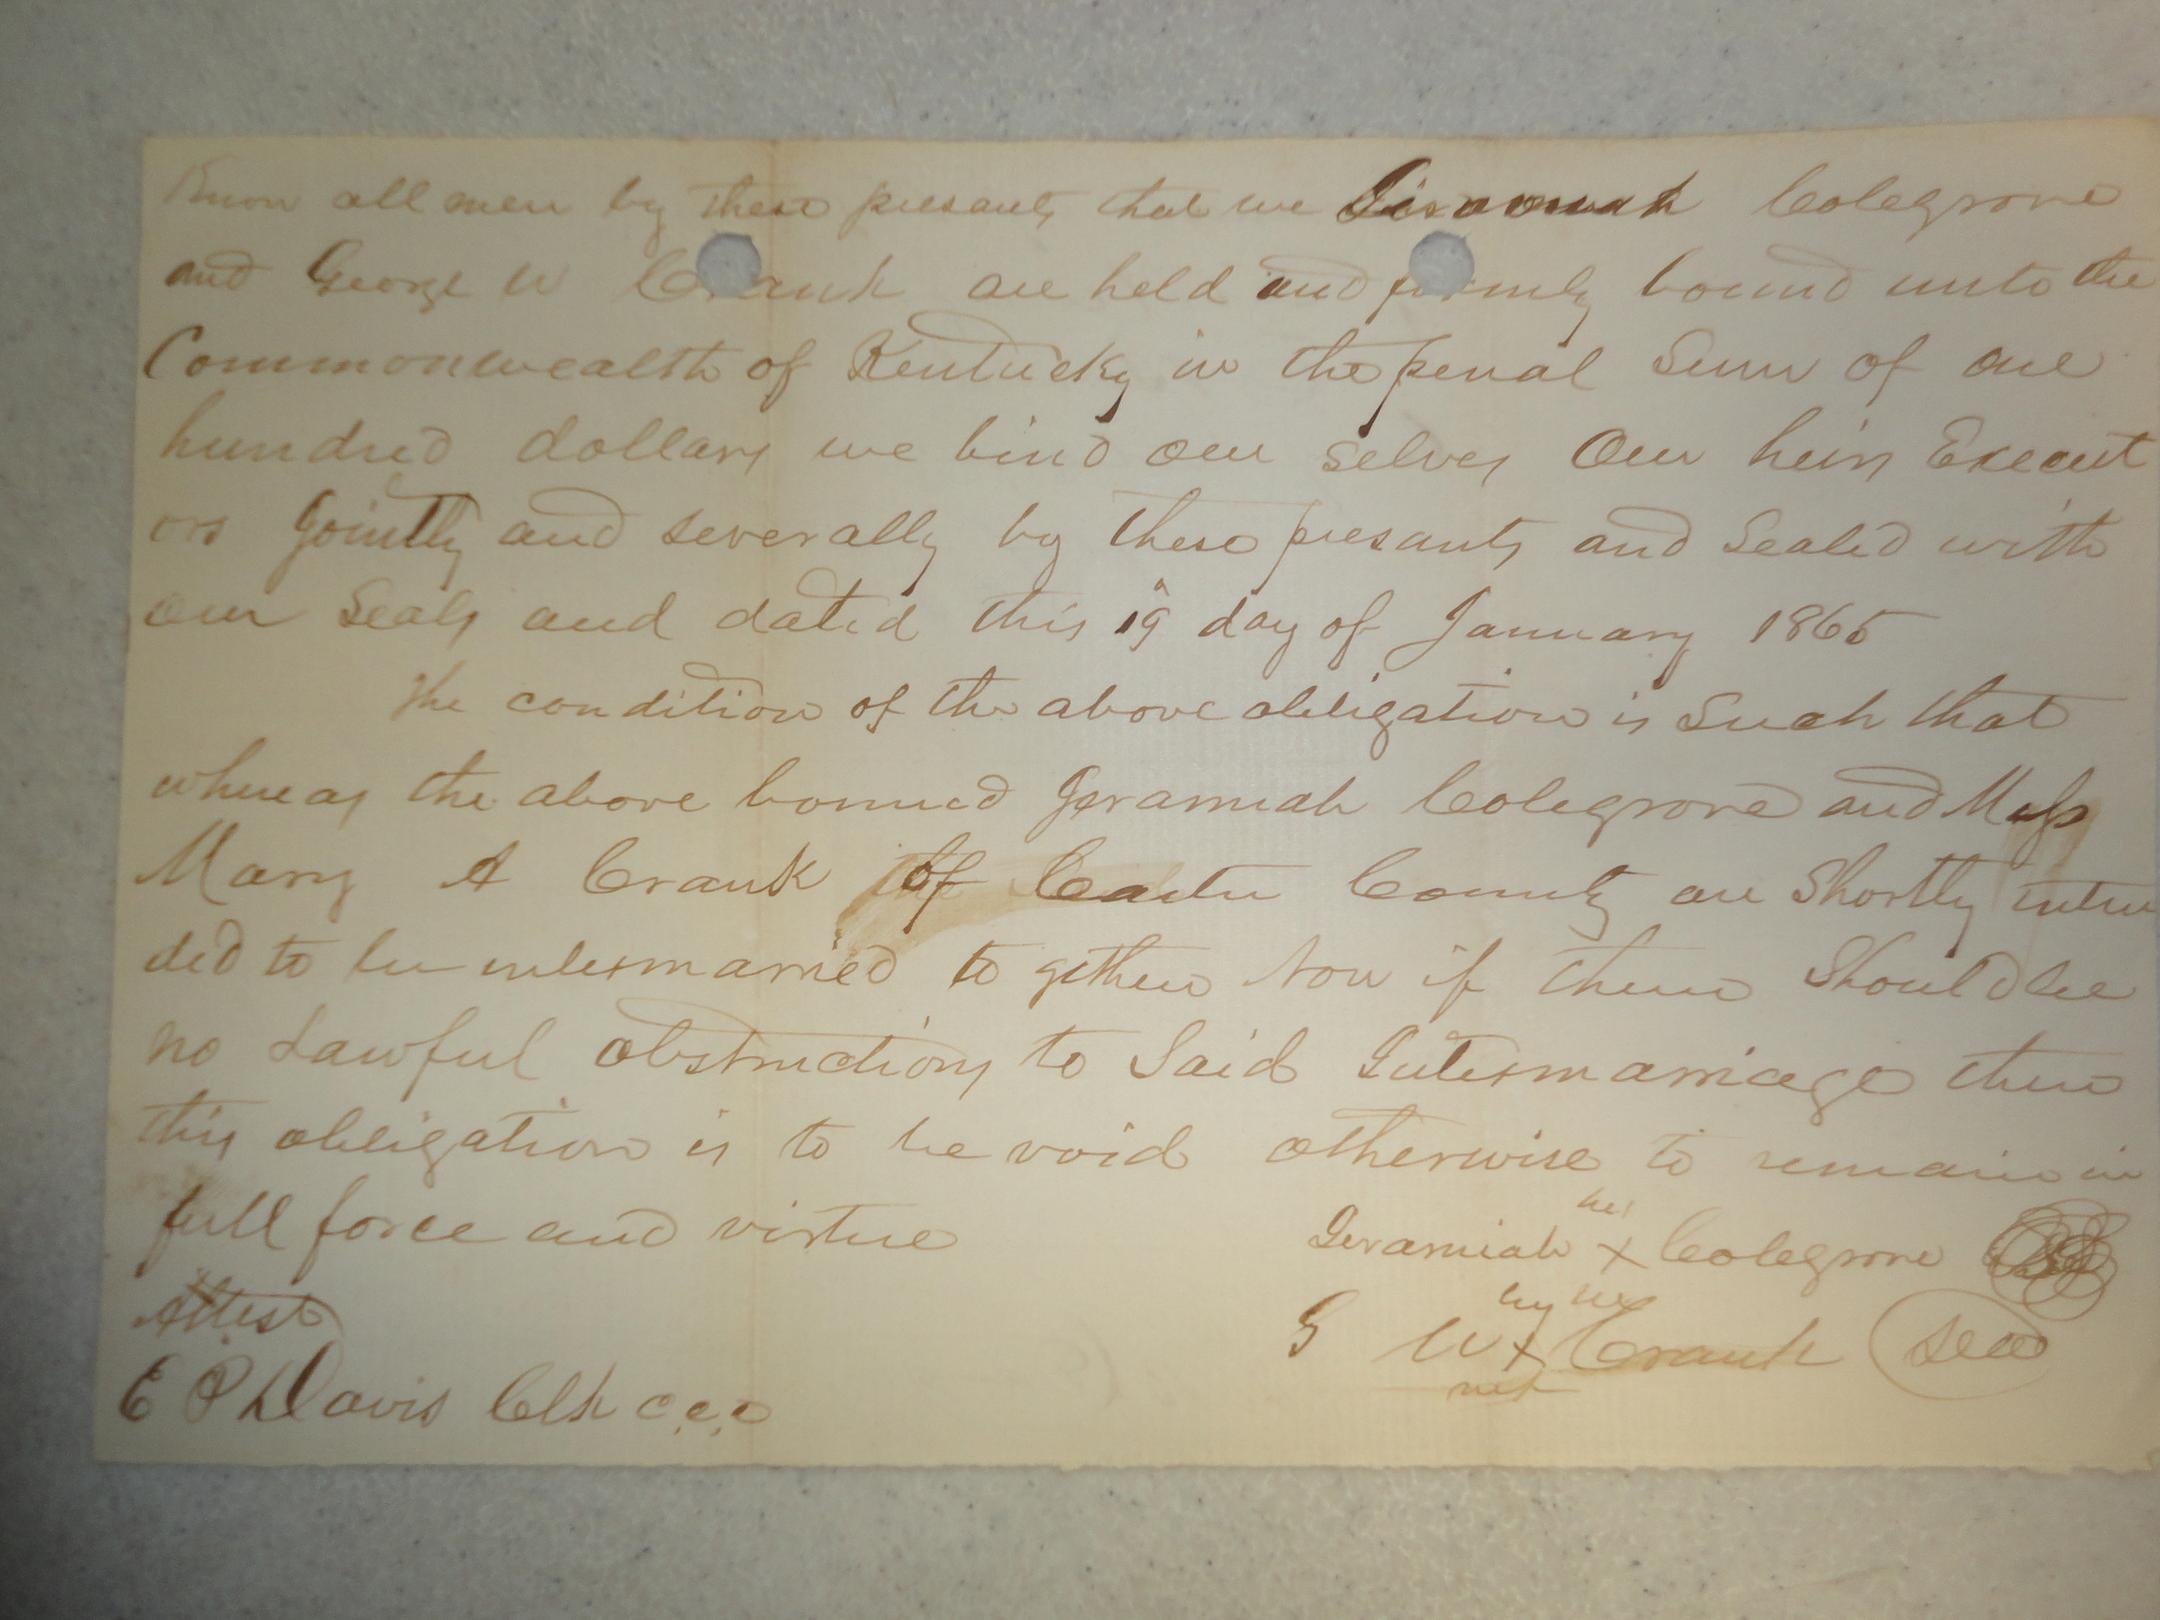 Know all men by these presants that we Jeramiah Colegrove
and George W Crank are held and firmly bound unto the
Commonwealth of Kentucky in the penal Sum of one
hundred dollars we bind our selves Our heirs Execut
ors Jointly and severally by these presants and Sealed with
our Seals and dated this 19 day of January 1865
The condition of the above obligation is Such that
whereas the above bonned Jeramiah Colegrove and Miss
Mary A Crank of Carter County are Shortly inten
ded to be intermarried to gether Now if there Should be
no Lawful obstructions to Said Intermarriage then
this obligation is to be void otherwise to remain in
full force and virtue
his
Jeramiah x Colegrove
Attest
G W x Crank Seal
E P Davis Clk C.C.C